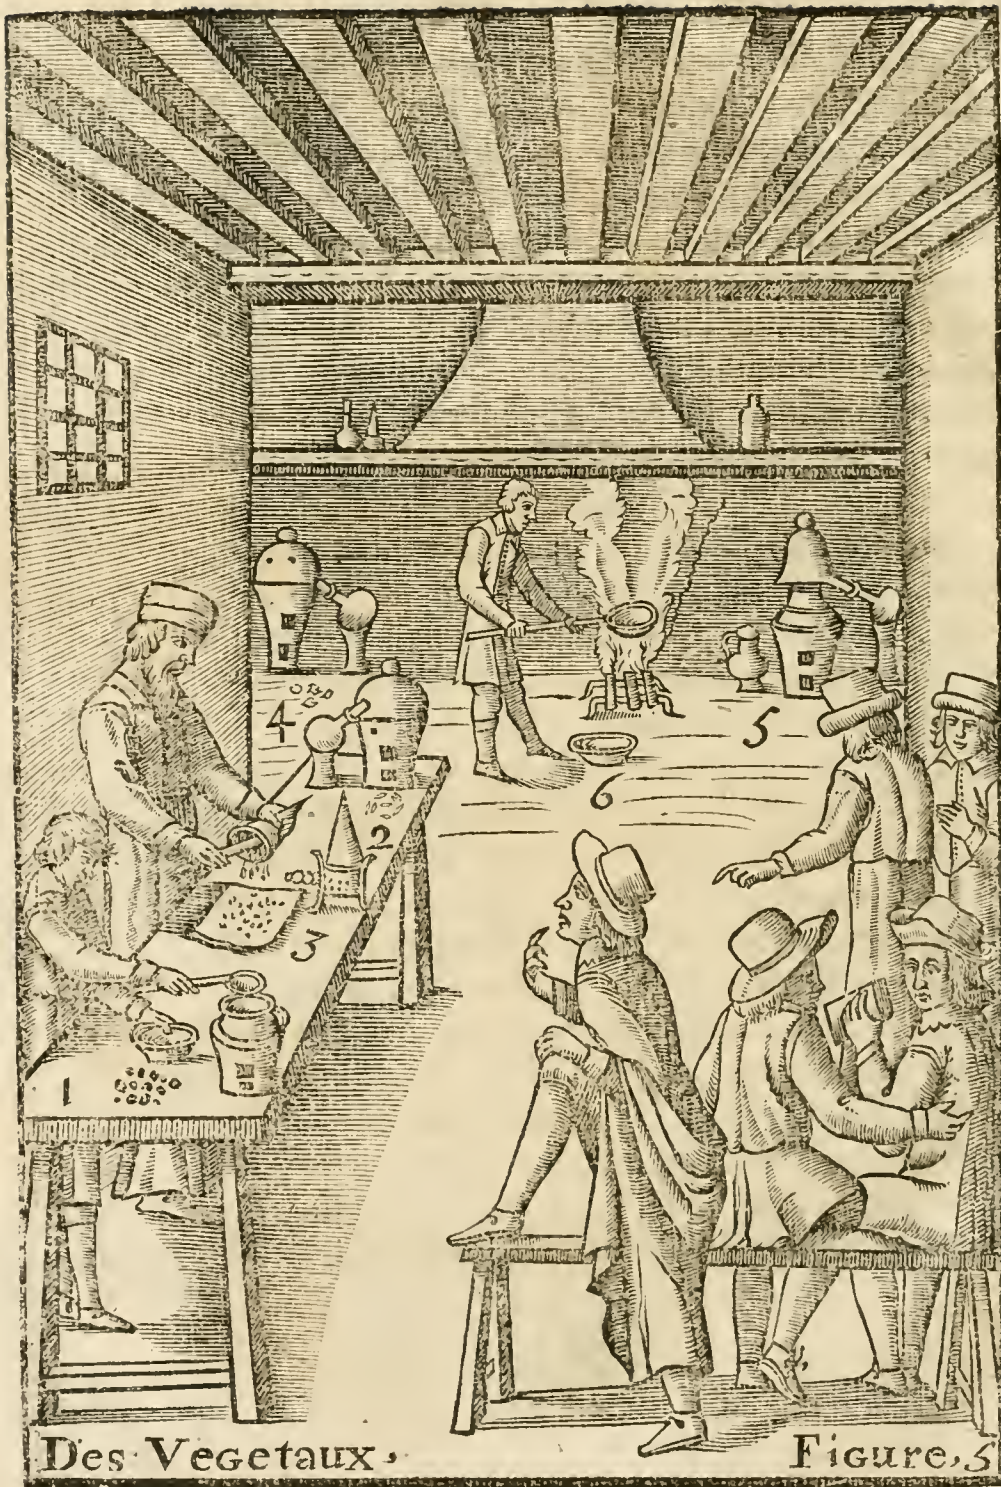 4
5
6
2
3
1
Des Vegetaux, Figure, 5